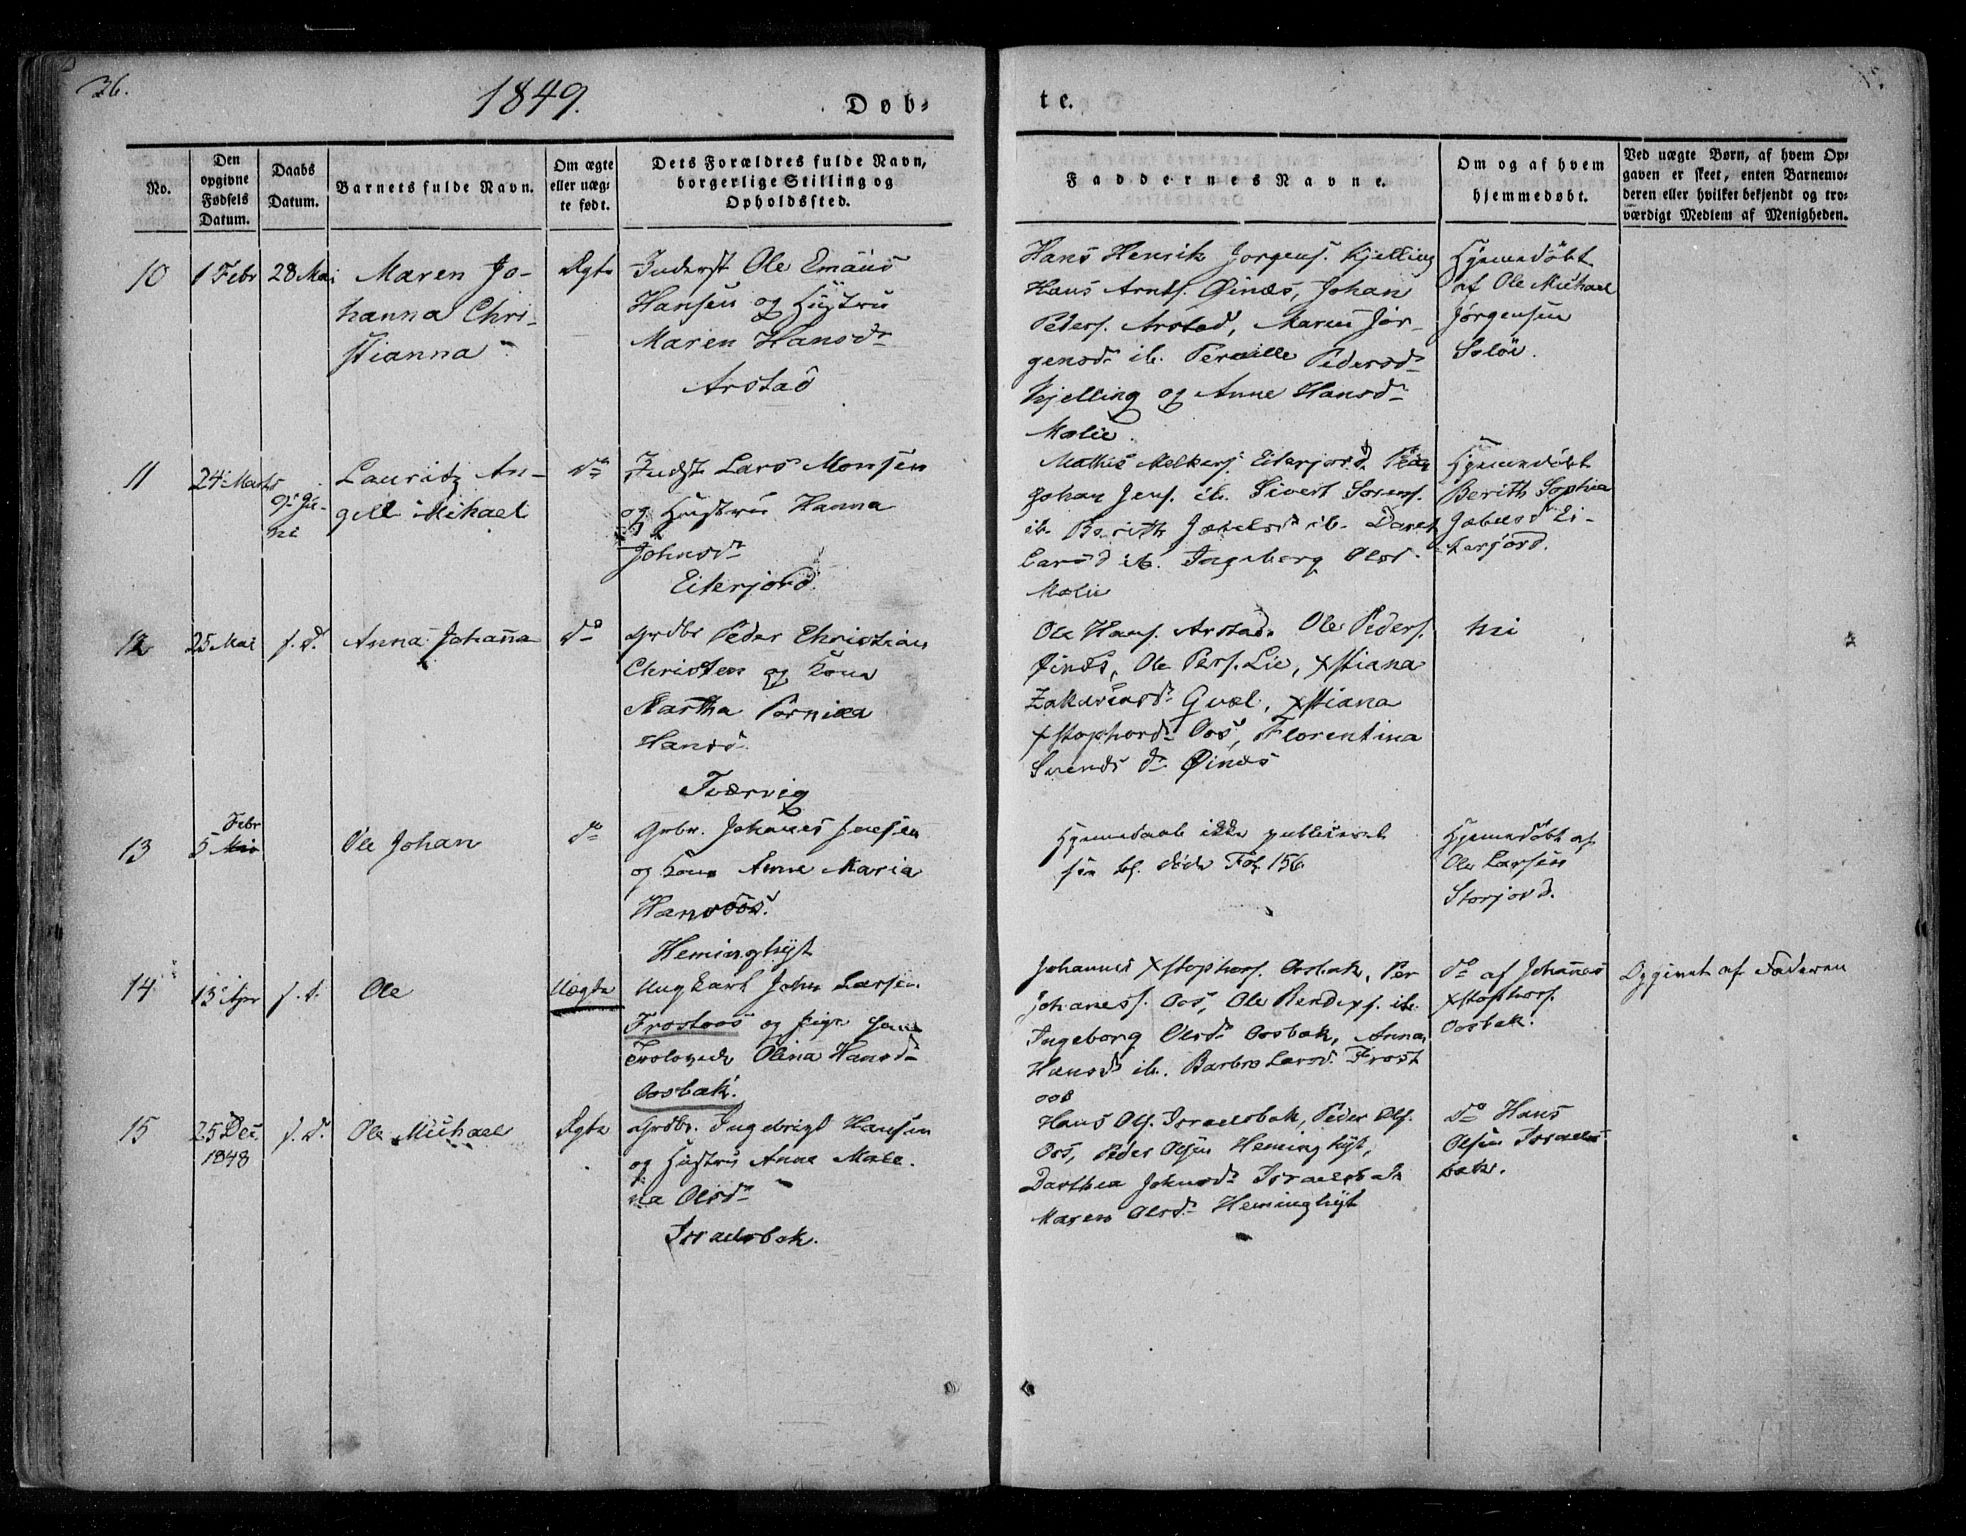 36.
1849.
Døb-
te.
No.
Den opgivne Fødsels Datum.
Daabs Datum.
Barnets fulde Navn.
Om ægte eller uæg-te født.
Dets Forældres fulde Navn, borgerlige Stilling og Opholdssted.
Faddernes Navne.
Om og af hvem hjemmedøbt.
Ved uægte Børn, af hvem Op-gaven er skeet, enten Barnemo-deren eller hvilket bekjendt og tro-værdigt Medlem af Menigheden.
10
1 Febr
28 Mai
Maren Jo-
hanna Chri-
stianna
Ægte
Inderst Ole Emäus
Hansen og Hustru
Maren Hansd
Arstad
Hans Henrik Jørgens. Kjelling
Hans Arnts. Øinæs, Johan
Peders. Arstad, Maren Jør-
gensd ib. Pernille Pedersd
Kjelling og Anne Hansd
Mælie.
Hjemmedøbt
af Ole Michael
Jørgensen
Soløe.
11
24 Marts
9 Ju-
ni
Lauritz An-
gell Mihael
do
Indst Lars Monsen
og Hustru Hanna
Johnsd
Eiterjord.
Mathis Melkers. Eiterjord. Peder
Johan Jens. ib. Sivert Sørens.
ib. Berith Jakelsd ib. Daret
Larsd ib. Ingeborg Olsd
Mælie
Hjemmedøbt
Berith Sophia
Jakelsd Ei-
terjord.
12
25 Mai
s. D.
Anna Johanna
do
Grdbr Peder Christian
Christen og Kone
Martha Pernilla
Hansd
Tværvig
Ole Hans. Arstad. Ole Peders.
Øinæs, Ole Pers. Lie, xstiana
Zakariasd Gvæl, xstiana
xstophersd Oos, Florentina
Svends d Øinæs
nei
13
Febr
5 Mai
Ole Johan
do
Grbr. Johanes Jensen
og Kone Anne Maria
Hansd Oos.
Heminghyt
Hjemmedaab ikke publiceret
see bl. døde Fol 156
Hjemmedøbt af
Ole Larsen
Storjord.
14
13 Apr
s. D.
Ole
Uægte
Ungkarl John Larsen
Frostoos og Pige
Olina Hansd
Oosbak.
Johannes xstophers. Oosbak, Per
Johaness. Oos, Ole Bendixs. ib.
Ingeborg Olsd Oosbak, Anna
Hansd ib. Barbro Larsd. Frost
oos
do af Johanes
xstophers.
Oosbak.
Opgivet af Faderen
15
25 Dec.
1848
s. D.
Ole Michael
Ægte
Grdbr. Ingebrigt Hansen
og Hustru Anne Male-
na Olsd
Israelsbak.
Hans Ols. Israelsbak, Peder Ols.
Oos, Peder Olsen Heminghyt,
Dorthea Johnsd Israelsbak
Maren Olsd Heminghyt
do Hans
Olsen Israels
bak.